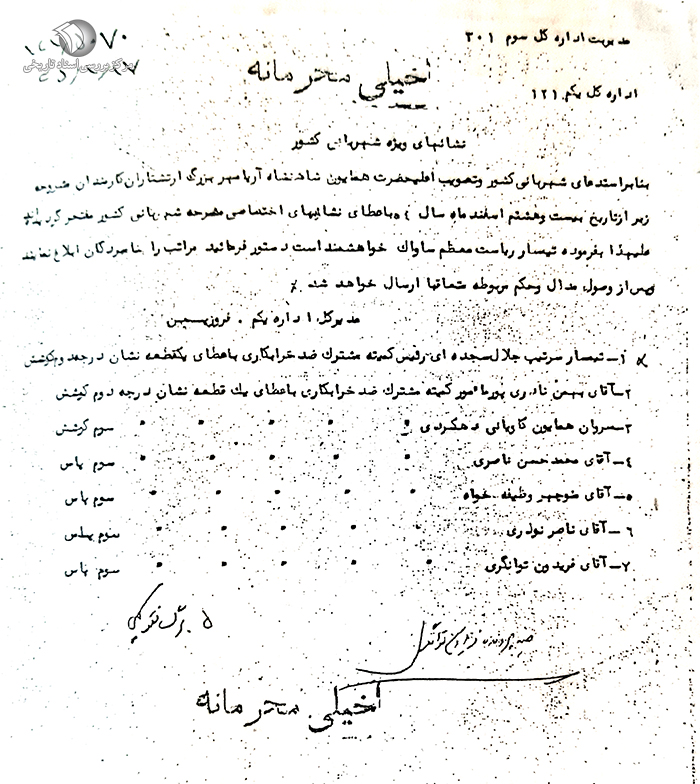 مرکز بررسی اسناد تاریخی
مدیریت اداره کل سوم ۳۰۱
خیلی محرمانه
اداره کل یکم ۱۲۱
نشانهای ویژه شهربانی کشور
بنابراستدعای شهربانی کشور وتصویب اعلیحضرت همایون شاهنشاه آریامهر بزرگ ارتشتاران کارمندان مشروحه
زیر ازتاریخ بیست وهشتم اسفند ماه سال باعطای نشانهای اختصاصی مشرحه شهربانی کشور مفتخر گردیدند
علیهذا بفرموده تیمسار ریاست معظم ساواک خواهشمند است دستور فرمائید مراتب را بنامبردگان ابلاغ نمایند
پس از وصول، مدال وحکم مربوطه متعاقبا ارسال خواهد شد
مدیرکل اداره یکم . فروزیین
۱- تیمسار سرتیپ جلال سجده ای رئیس کمیته مشترک ضد خرابکاری باعطای یکقطعه نشان درجه دوم کوشش
۲-آقای بهمن نادری پور مامور کمیته مشترک ضد خرابکاری باعطای یک قطعه نشان درجه دوم کوشش
۳-سروان همایون کاویانی دهکردی " " " " سوم کوشش
۴- آقای محمد حسن ناصری " " " " سوم پاس
۵- آقای منوچهر وظیفه خواه " " " " سوم پاس
۶- آقای ناصر نوذری " " " " سوم پاس
۷- آقای فریدون توانگری " " " " سوم پاس
خیلی محرمانه